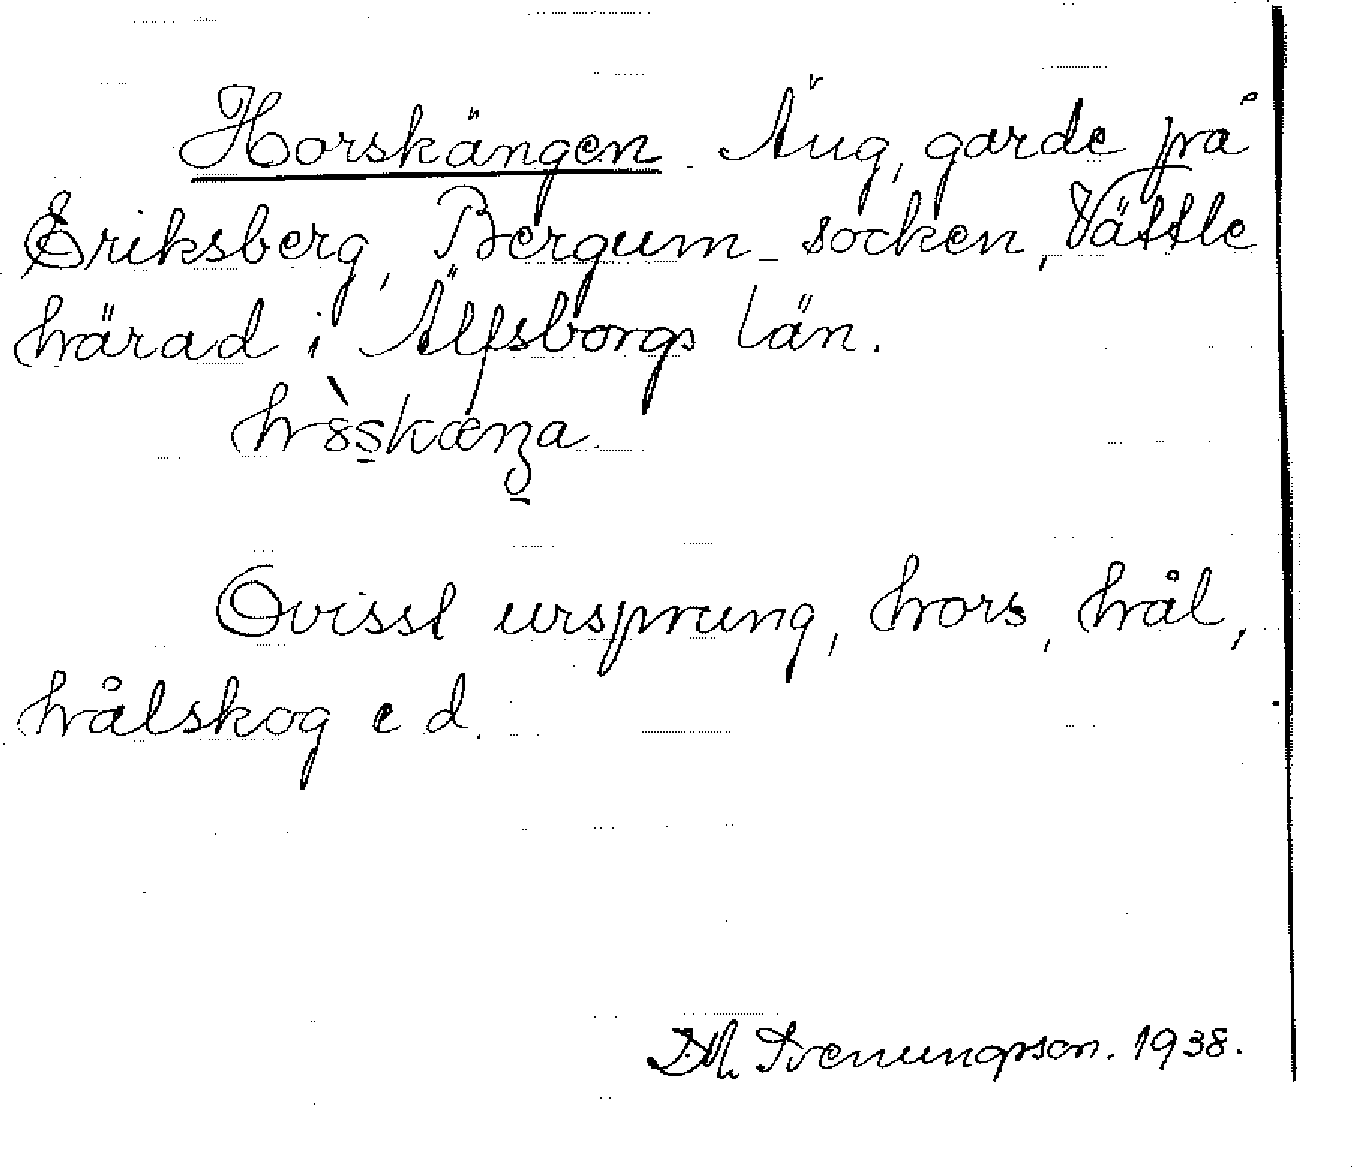 Horskängen. Äng, gärde på
Eriksberg, Bergum socken, Vättle
härad i Älfsborgs län.
Ovisst ursprung, hors, hål,
hålskog e d.
1938.